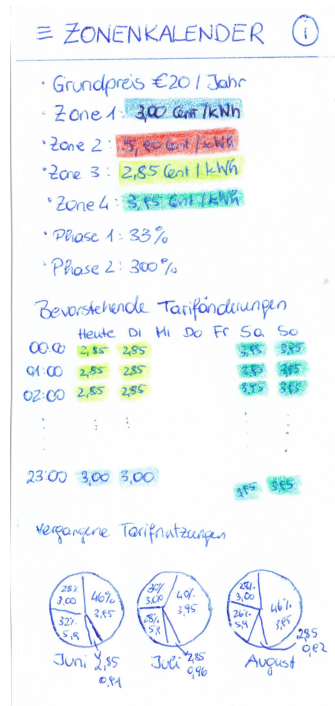 ≡ ZONENKALENDER i
• Grundpreis €20 / Jahr
• Zone 1: 3,00 Cent / kWh
• Zone 2: 5,90 Cent / kWh
• Zone 3: 2,85 Cent / kWh
• Zone 4: 3,95 Cent / kWh
• Phase 1: 33%
• Phase 2: 300%
Bevorstehende Tarifänderungen
Heute Di Mi Do Fr Sa So
00:00 2,85 2,85 3,95 3,95
01:00 2,85 2,85 3,95 3,95
02:00 2,85 2,85 3,95 3,95
23:00 3,00 3,00 3,95 3,95
Vergangene Tarifnutzungen
28% 3,00 46% 3,95 32% 5,9
Juni 2,85
3,00 40% 3,95 28% 5,9
Juli 2,85 0,96
3,00 46% 3,95 26% 5,9
August 2,85 0,82